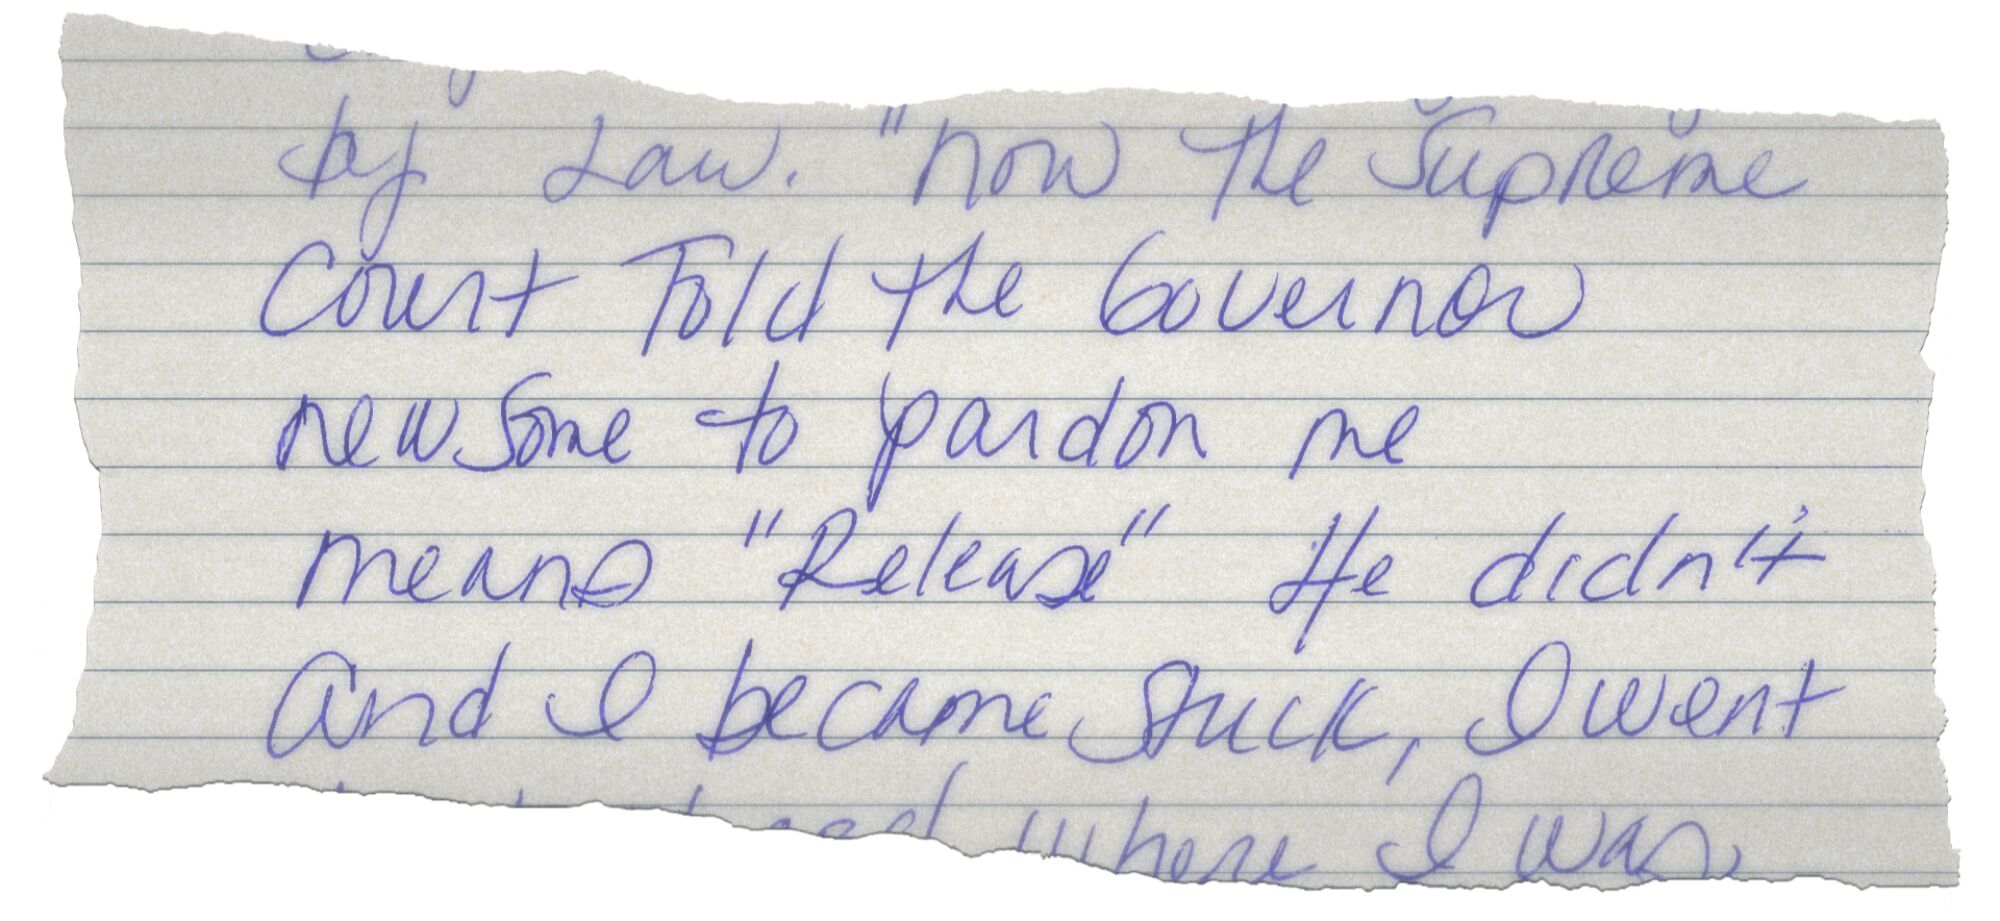 by Law. "now the Supreme
Court Told the Governor
newsome to pardon me
means "Release" He didn't
and I became stuck, I went
where I was